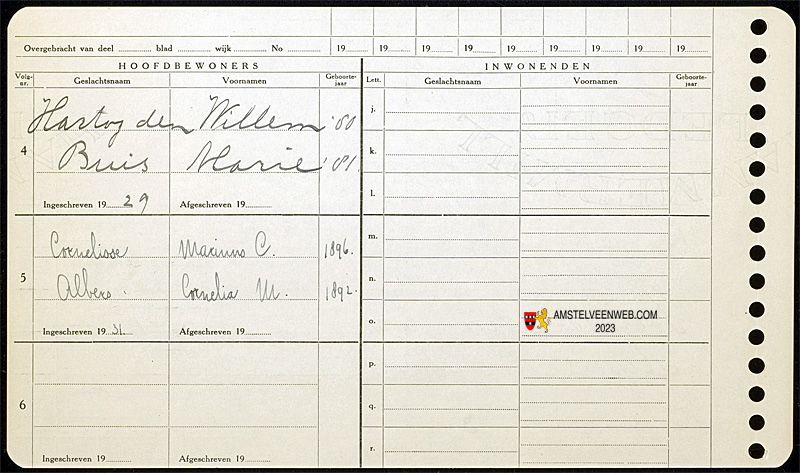 Overgebracht van deel ............ blad ............ wijk ............ No ............ 19...... 19...... 19...... 19...... 19...... 19...... 19...... 19...... 19......
HOOFDBEWONERS INWONENDEN
Volg-nr. Geslachtsnaam Voornamen Geboorte-jaar Lett. Geslachtsnaam Voornamen Geboorte-jaar
Hartog den Willem '80 j.
4 Buis Marie '81 k.
Ingeschreven 19 29 Afgeschreven 19...... l.
Cornelisse Marinus C. 1896. m.
5 Albers Cornelia M. 1892 n.
Ingeschreven 19 31. Afgeschreven 19...... o.
AMSTELVEENWEB.COM
2023
p.
6 q.
Ingeschreven 19...... Afgeschreven 19...... r.